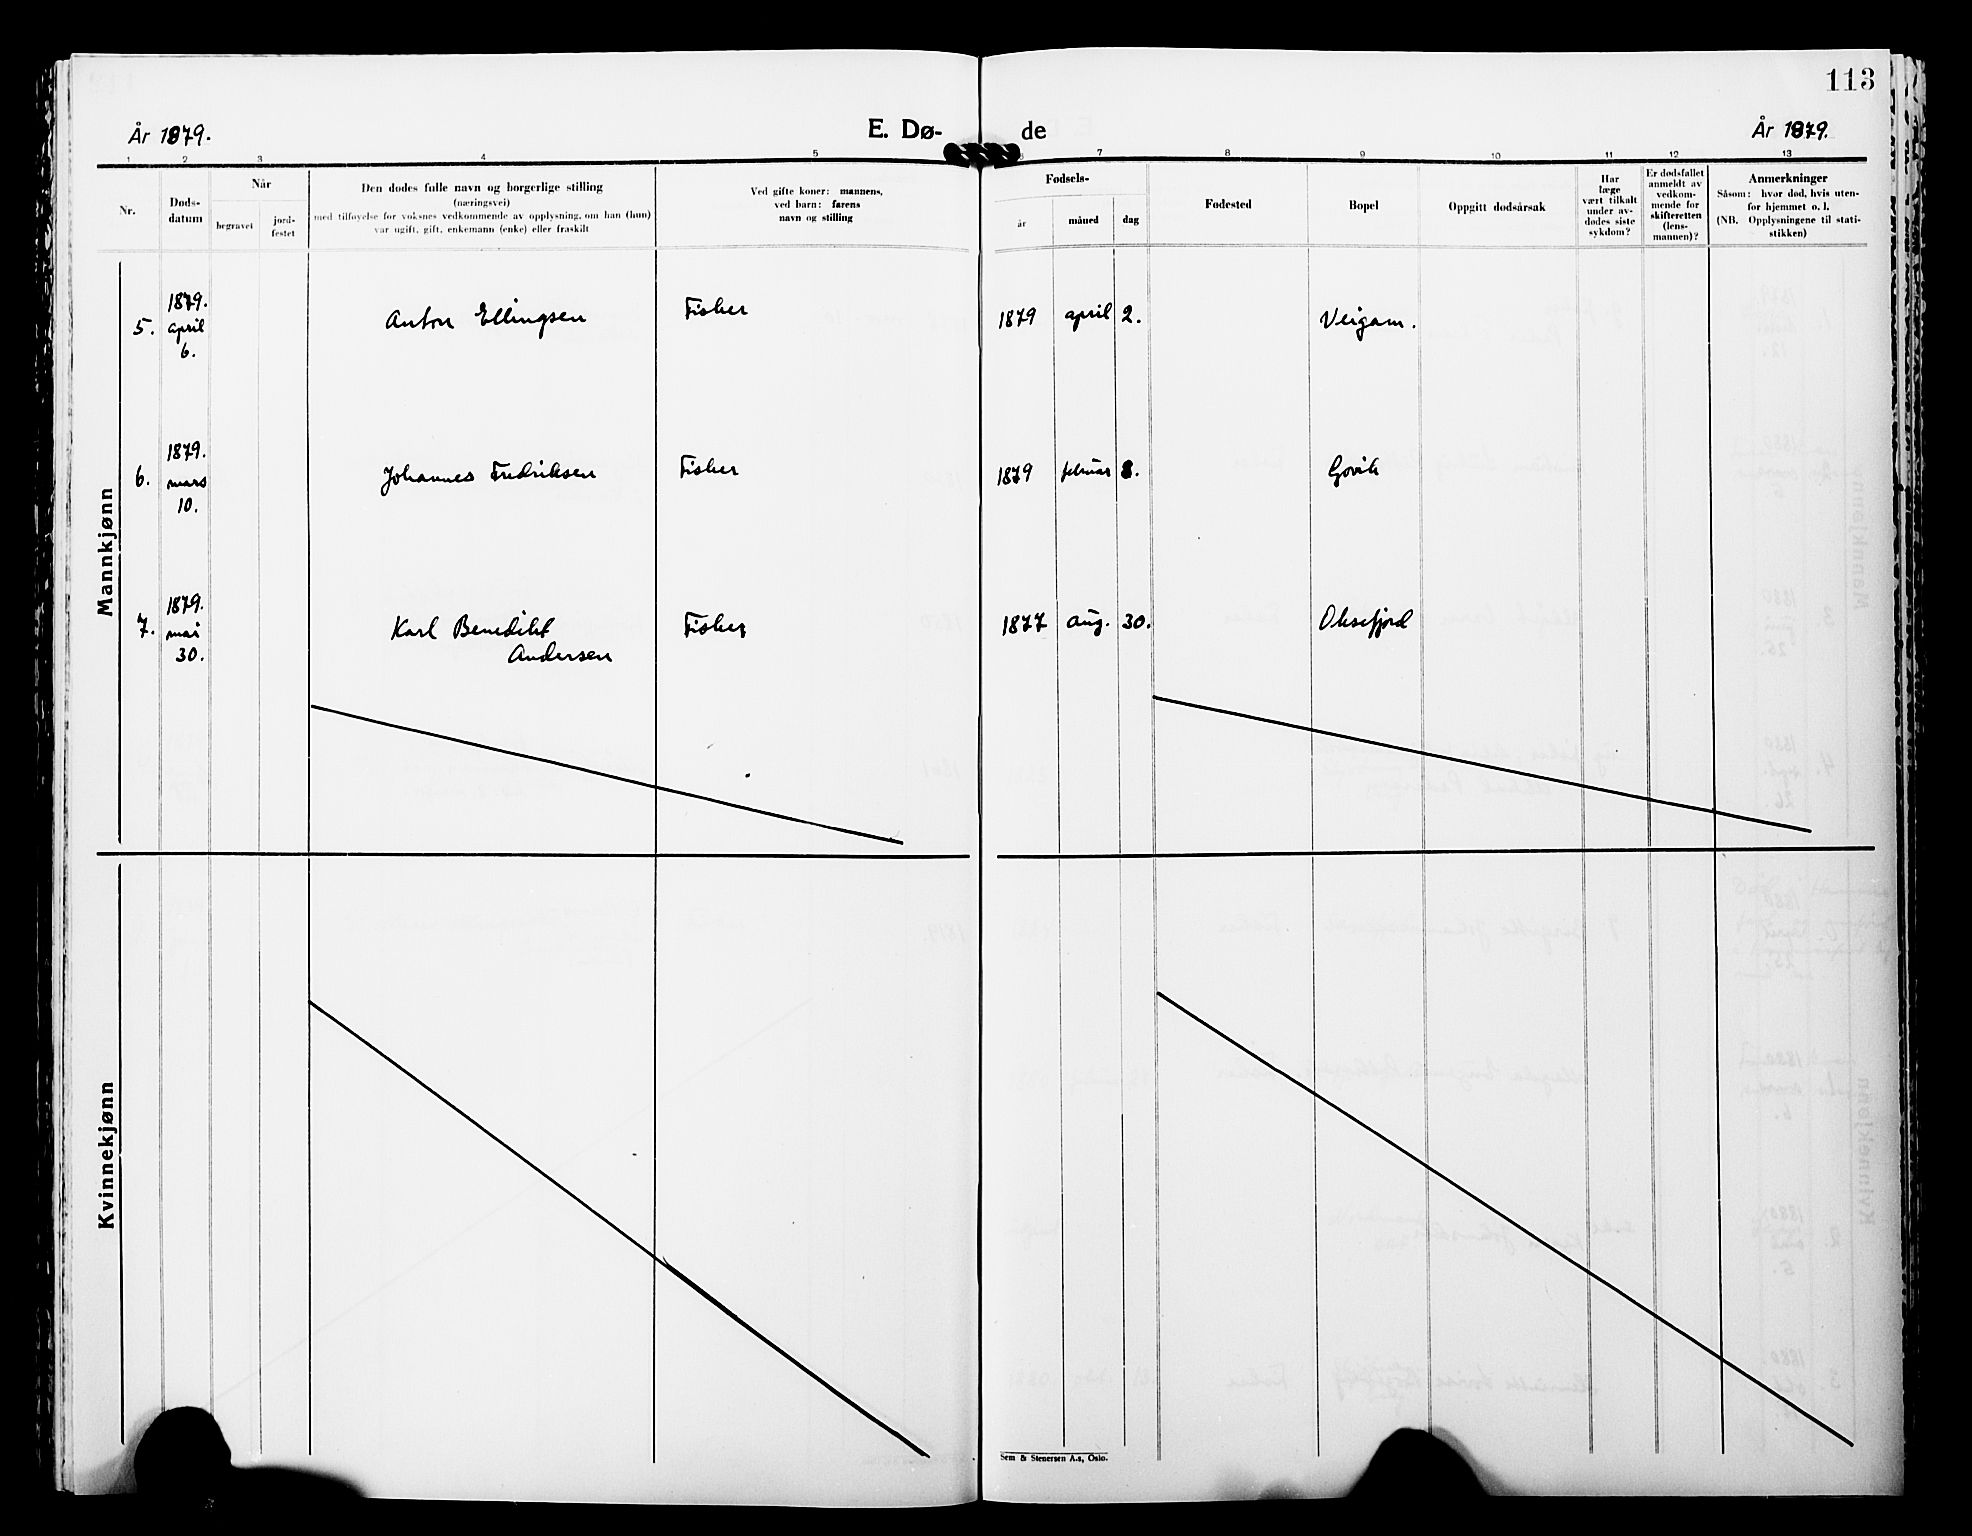 113
År 1879.
E. Dø-
de
År 1879.
1 2 3 4 5
7 8 9 10 11 12 13
Nr.
Døds-
datum
Når
begravet
jord-
festet
Den dødes fulle navn og borgerlige stilling
(næringsvei)
med tilføyelse for voksnes vedkommende av opplysning, om han (hun)
var ugift, gift, enkemann (enke) eller fraskilt
Ved gifte koner: mannens,
ved barn: farens
navn og stilling
Fødsels-
år
måned
dag
Fødested
Bopel
Oppgitt dødsårsak
Har
læge
vært tilkalt
under av-
dødes siste
sykdom?
Er dødsfallet
anmeldt av
vedkom-
mende for
skifteretten
(lens-
mannen)?
Anmerkninger
Såsom: hvor død, hvis uten-
for hjemmet o. l.
(NB. Opplysningene til stati-
stikken)
Mannkjønn
5.
1879.
april
6.
Anton Ellingsen
Fisker
1879 april 2.
6.
1879.
mars
10.
Johannes Fredriksen
Fisker
1879 februar 8.
7.
1879.
mai
30.
Karl Benedikt
Andersen
Fisker
1877 aug. 30.
Oksefjord
Kvinnekjønn
Sem & Stenersen A.s, Oslo.